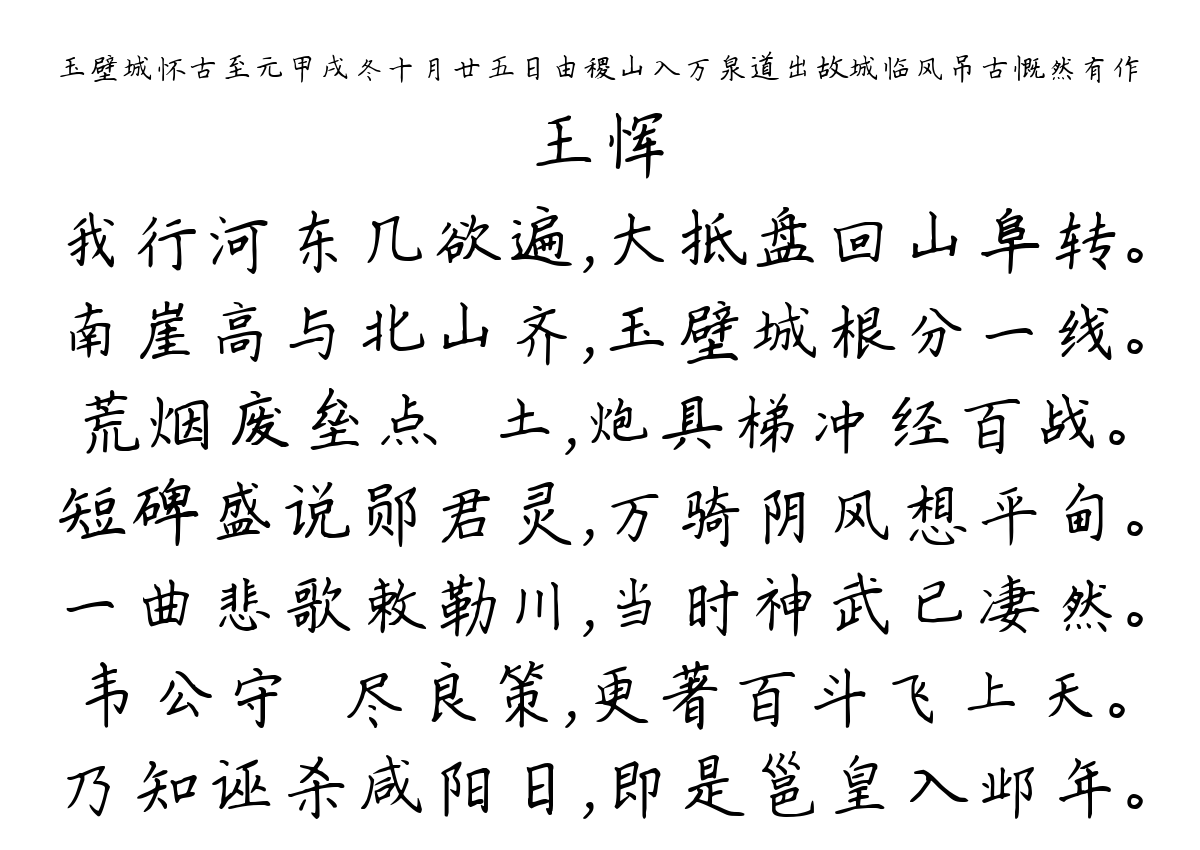 玉壁城怀古至元甲戌冬十月廿五日由稷山入万泉道出故城临风吊古慨然有作
王恽
我行河东几欲遍,大抵盘回山阜转。
南崖高与北山齐,玉壁城根分一线。
荒烟废垒点 土,炮具梯冲经百战。
短碑盛说郧君灵,万骑阴风想平甸。
一曲悲歌敕勒川,当时神武已凄然。
韦公守 尽良策,更著百斗飞上天。
乃知诬杀咸阳日,即是邕皇入邺年。